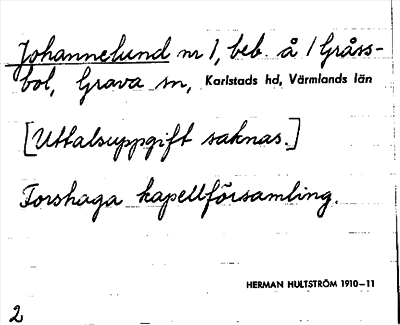 Johannelund nr 1, beb. å 1 Gråss-
bol, Grava sn, Karlstads hd, Värmlands län
[Uttalsuppgift saknas.]
Forshaga kapellförsamling.
HERMAN HULTSTRÖM 1910–11
2